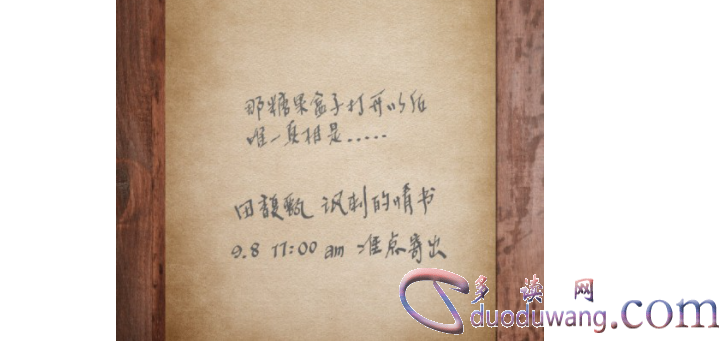 那糖果盒子打开以后
唯一真相是.....
田馥甄 讽刺的情书
9.8 11:00 am 准点寄出
多读网
duoduwang.com